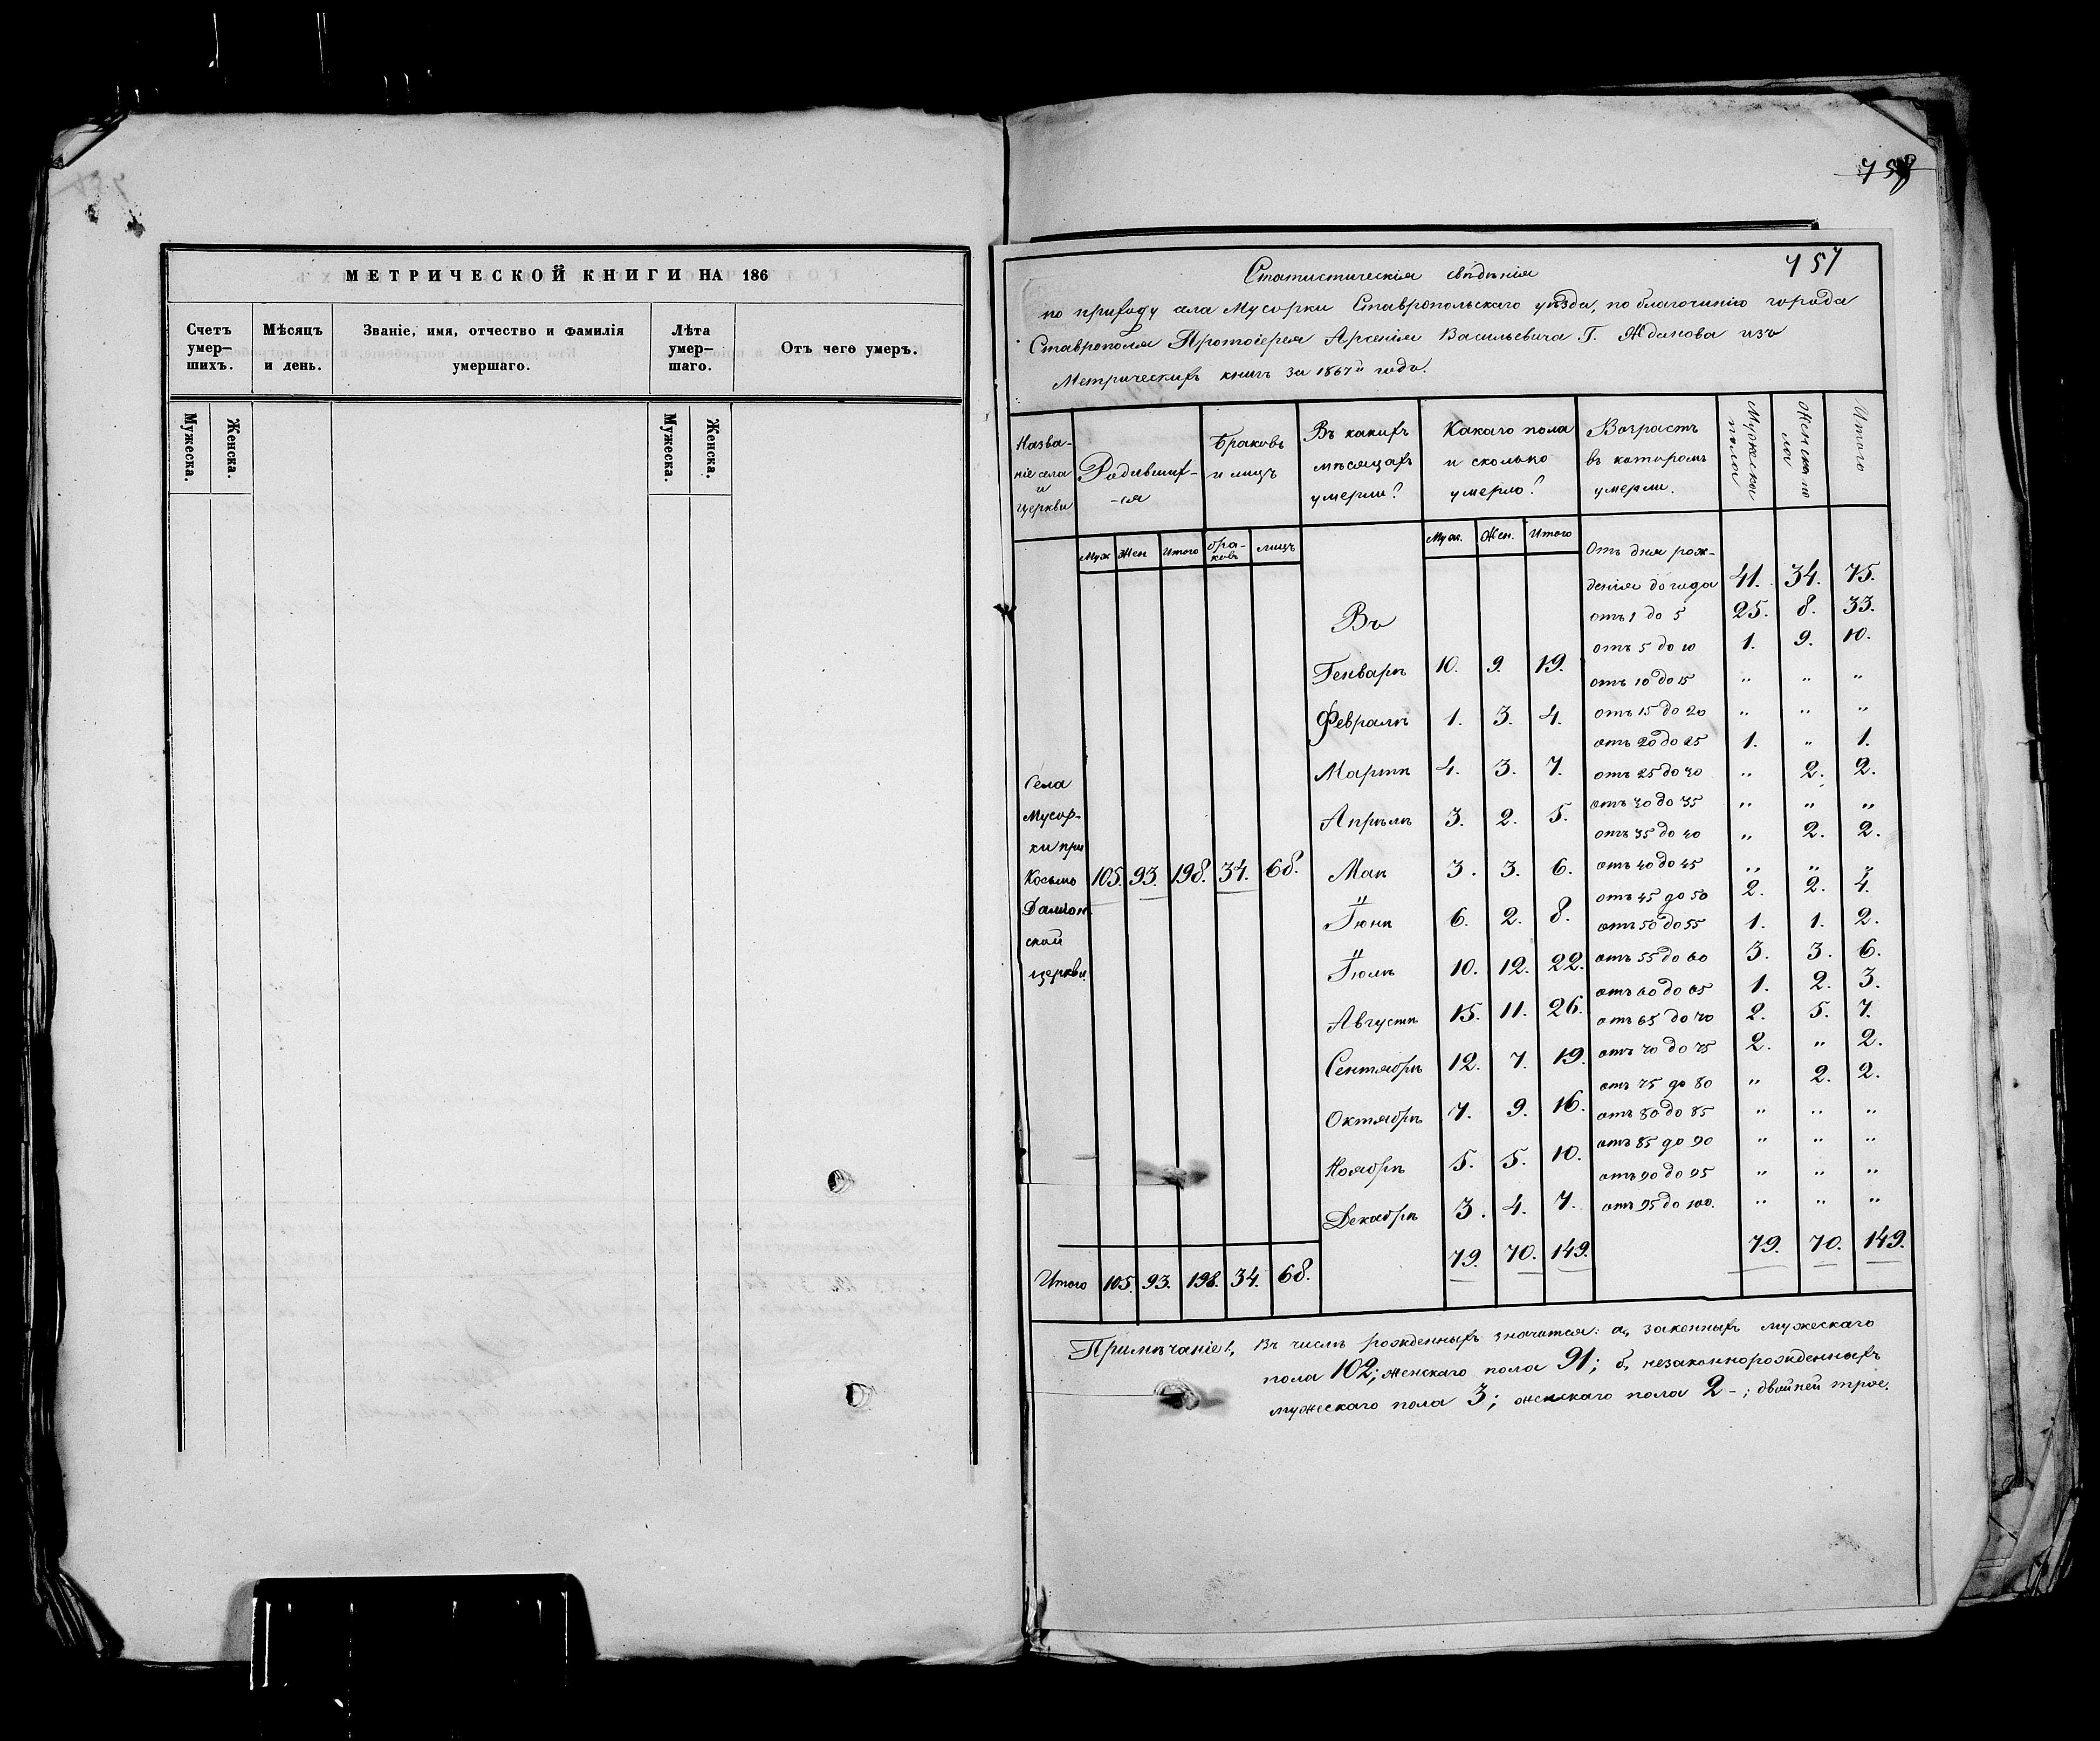 МЕТРИЧЕСКОЙ КНИГИ НА 186
Счетъ умер—шихъ. Мѣсяцъ и день. Званіе, имя, отчество и фамилія умершаго. Лѣта умер—шаго. Отъ чего умеръ.
Мужеска. Женска. Мужеска. Женска.
757
Статистическія свѣдѣнія
по приходу села Мусорки Ставропольскаго уѣзда, по благочинію города
Ставрополя Протоіерея Арсенія Васильевича Г. Жданова изъ
Метрическихъ книгъ за 1867й годъ.
Назва-ніе села и церкви Родивших-ся Браковъ и лицъ Въ какихъ мѣсяцахъ умерли? Какаго пола и сколько умерло? Возрастъ въ которомъ умерли. Мужеска пола Женска пола Итого
Муж Жен Итого бра-ковъ лицъ Муж. Жен. Итого
Села
Мусор-
ки при
Космо
Даміон.
ской
церкви.
105. 93. 198. 34. 68.
Въ
Генварѣ 10. 9. 19.
Февралѣ 1. 3. 4.
Мартѣ 4. 3. 7.
Апрѣлѣ 3. 2. 5.
Маѣ 3. 3. 6.
Іюнѣ 6. 2. 8.
Іюлѣ 10. 12. 22.
Августѣ 15. 11. 26.
Сентябрѣ 12. 7. 19.
Октябрѣ 7. 9. 16.
Ноябрѣ 5. 5. 10.
Декабрѣ 3. 4. 7.
79. 70. 149.
Отъ дня рож-
денія до года 41. 34. 75.
отъ 1 до 5 25. 8. 33.
отъ 5 до 10 1. 9. 10.
отъ 10 до 15 „ „ „
отъ 15 до 20 „ „ „
отъ 20 до 25 1. „ 1.
отъ 25 до 30 „ 2. 2.
отъ 30 до 35 „ „ „
отъ 35 до 40 „ 2. 2.
отъ 40 до 45 „ „ „
отъ 45 до 50 2. 2. 4.
отъ 50 до 55 1. 1. 2.
отъ 55 до 60 3. 3. 6.
отъ 60 до 65 1. 2. 3.
отъ 65 до 70 2. 5. 7.
отъ 70 до 75 2. „ 2.
отъ 75 до 80 „ 2. 2.
отъ 80 до 85 „ „ „
отъ 85 до 90 „ „ „
отъ 90 до 95 „ „ „
отъ 95 до 100. „ „ „
79. 70. 149.
Итого 105. 93. 198. 34. 68.
Примѣчаніе!, Въ числѣ рожденныхъ значится: а, законныхъ мужескаго
пола 102; женскаго пола 91; б, незаконнорожденныхъ
мужескаго пола 3; женскаго пола 2 -; двойней трое.